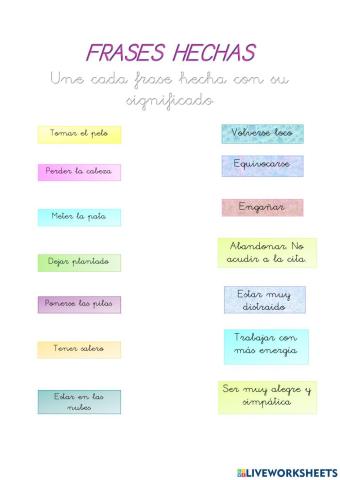 FRASES HECHAS
Une cada frase hecha con su
significado
Tomar el pelo
Volverse loco
Perder la cabeza
Equivocarse
Meter la pata
Engañar
Dejar plantado
Abandonar. No
acudir a la cita.
Ponerse las pilas
Estar muy
distraido
Tener salero
Trabajar con
más energía
Estar en las
nubes
Ser muy alegre y
simpática
LIVEWORKSHEETS